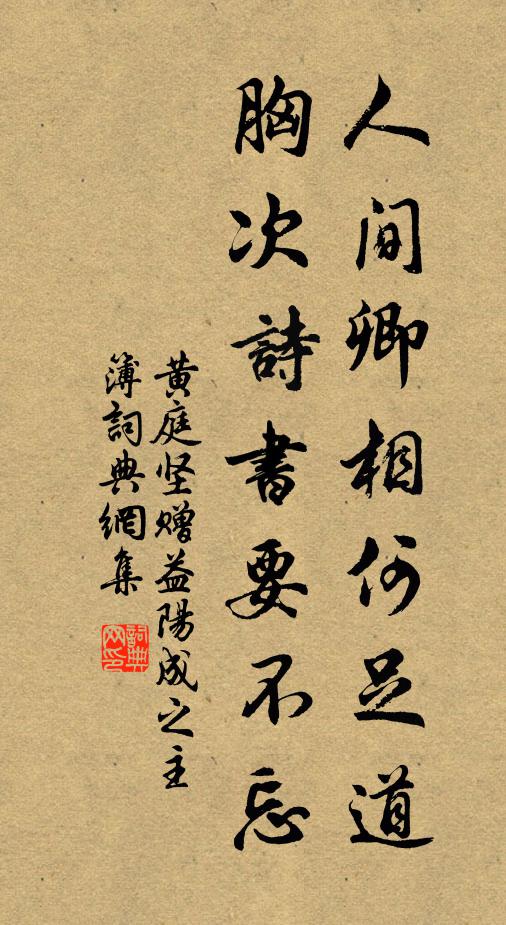 人間卿相何足道
胸次詩書要不忘
黄庭坚赠益陽成之主
簿詞典網集
詞典网印